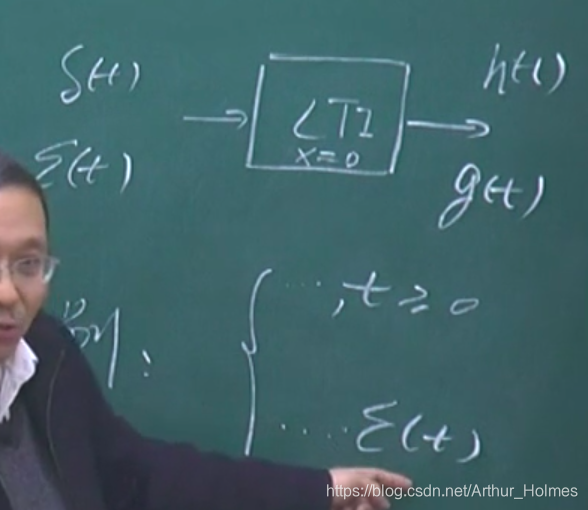 δ(t) h(t)
→ LTI →
x=0
ε(t) g(t)
{ ..., t ≥ 0
: .... ε(t)
https://blog.csdn.net/Arthur_Holmes